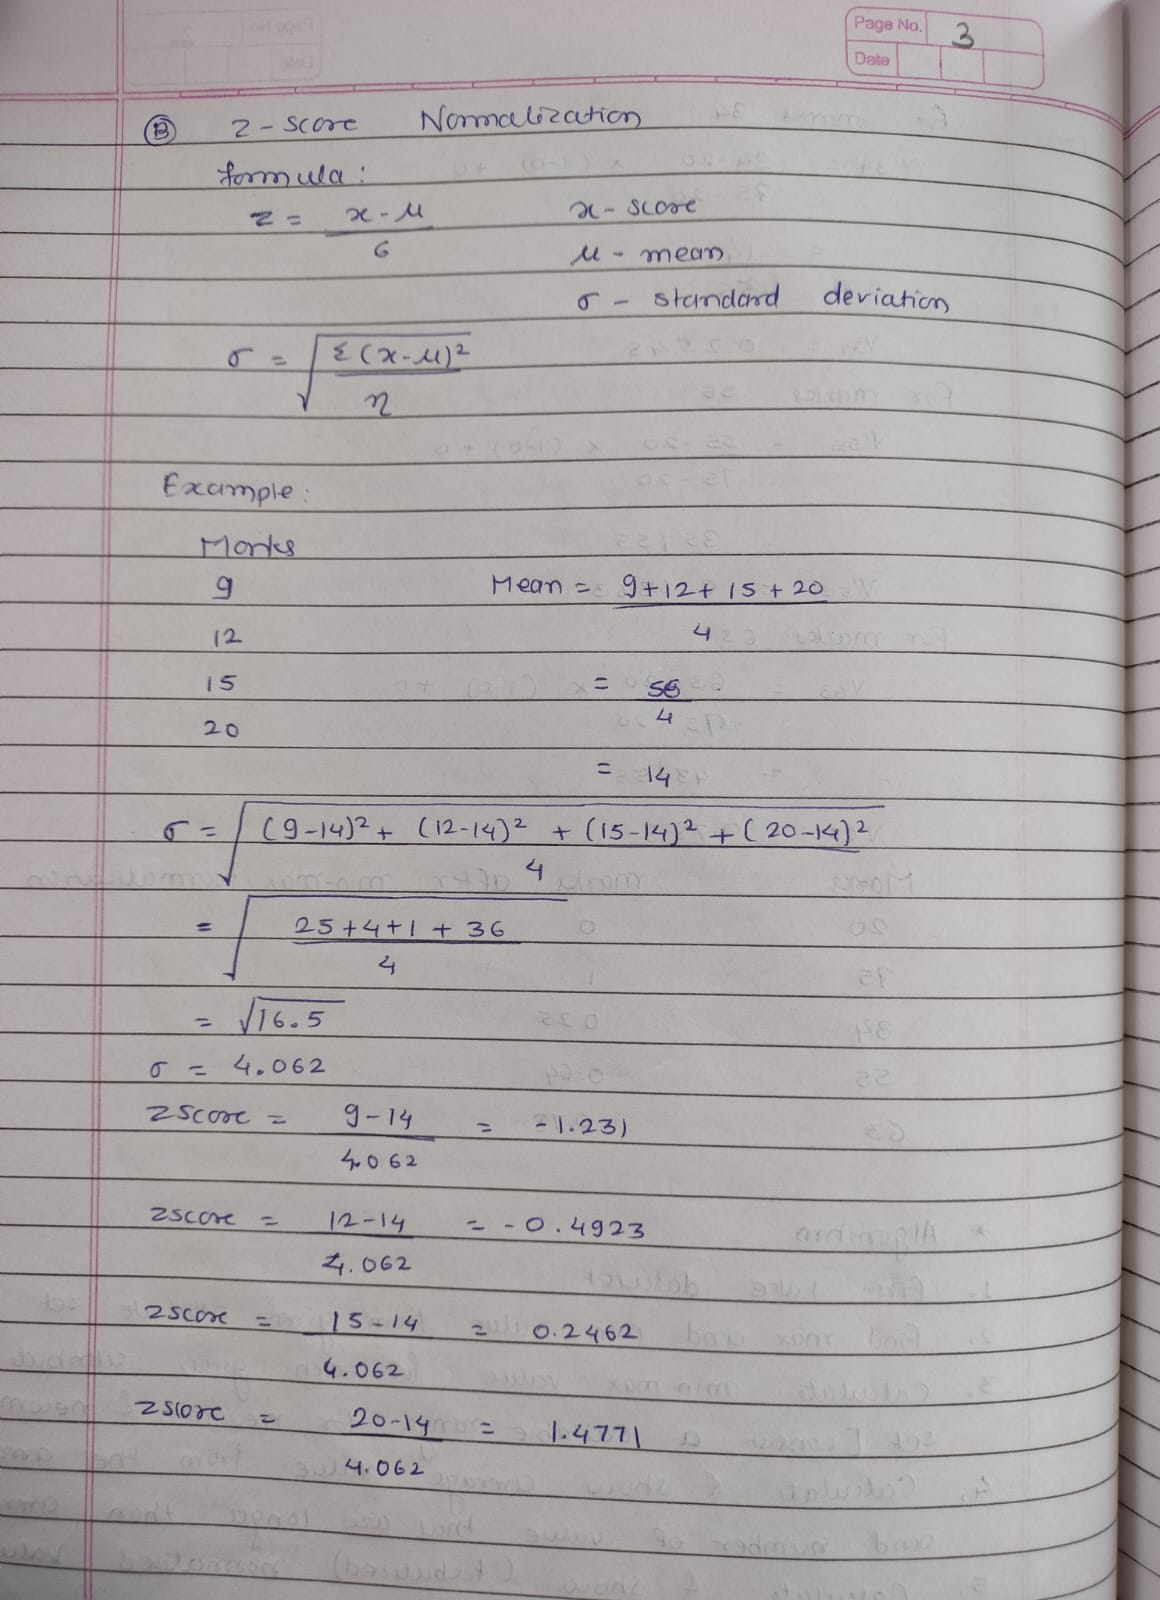 Page No. 3
Date
(B) Z-score Normalization
formula:
z = (x-μ)/6    x-score
μ - mean
σ - standard deviation
σ = √(Σ(x-μ)²/n)
Example:
Marks
9    Mean = (9+12+15+20)/4
12
15    = 56/4
20
= 14
σ = √(((9-14)² + (12-14)² + (15-14)² + (20-14)²)/4)
= √((25+4+1+36)/4)
= √16.5
σ = 4.062
zscore = (9-14)/4.062 = -1.231
zscore = (12-14)/4.062 = -0.4923
zscore = (15-14)/4.062 = 0.2462
zscore = (20-14)/4.062 = 1.4771